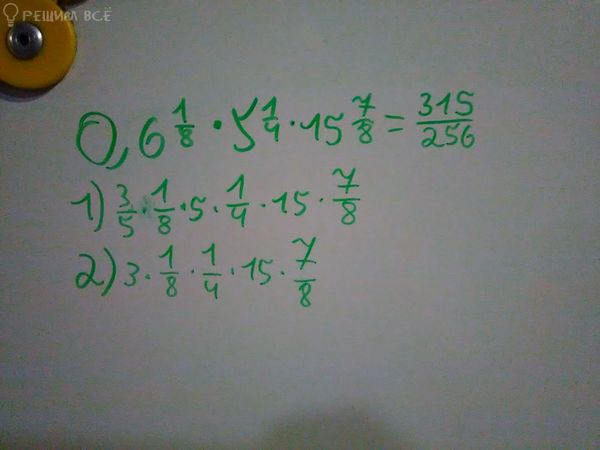 РЕШИЛ ВСЁ
0,6 1/8 · 5 1/4 · 15 7/8 = 315/256
1) 3/5 · 1/8 · 5 · 1/4 · 15 · 7/8
2) 3 · 1/8 · 1/4 · 15 · 7/8